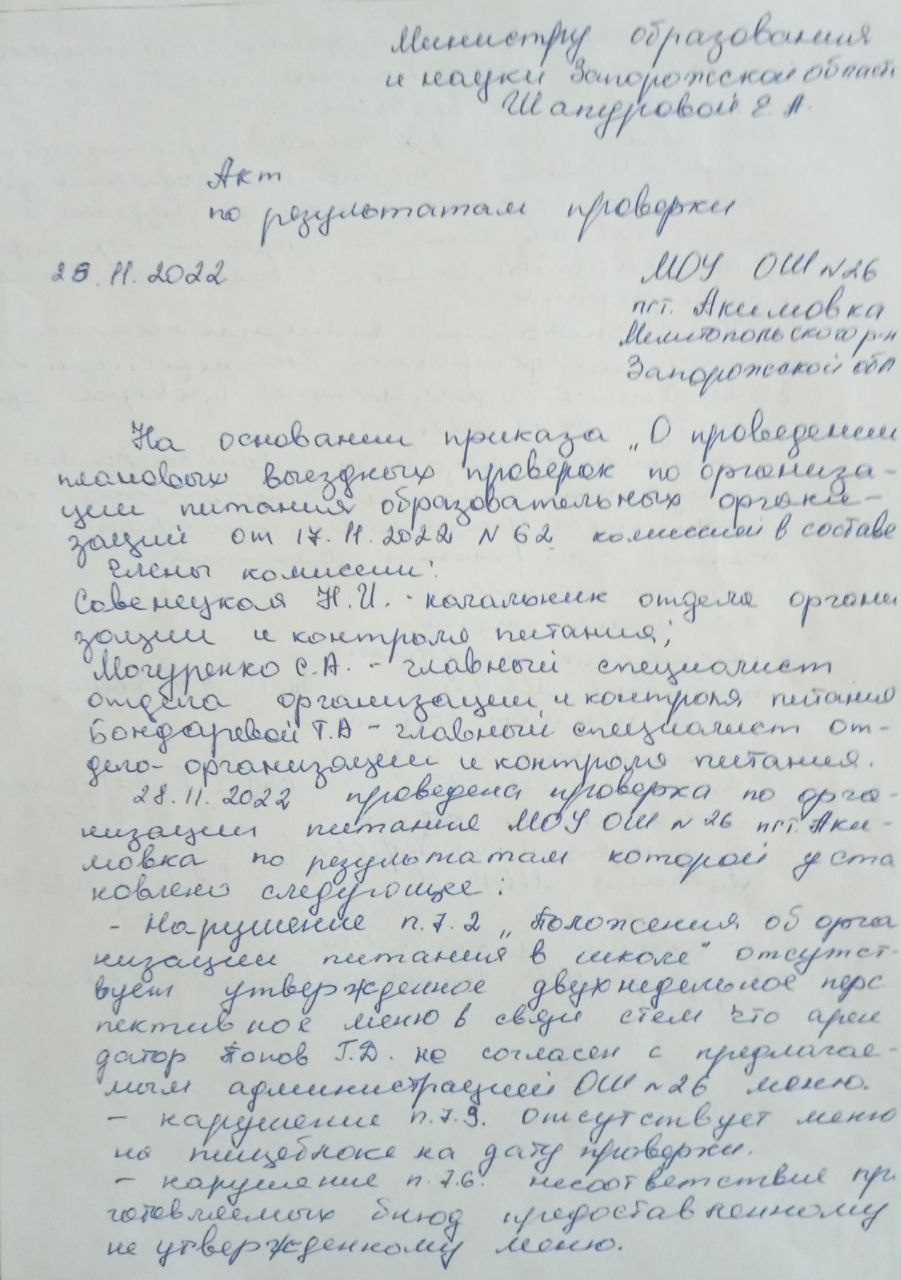 Министру образования
и науки Запорожской области
Шапуровой Е. А.
Акт
по результатам проверки
28.11.2022
МОУ ОШ №26
пгт. Акимовка
Мелитопольского р-н
Запорожской обл
На основании приказа „О проведении
плановых выездных проверок по организа-
ции питания образовательных органи-
заций от 17.11.2022 №62 комиссией в составе
Члены комиссии:
Савенецкая Н.И. - начальник отдела органи
зации и контроля питания;
Могуренко С.А. - главный специалист
отдела организации и контроля питания
Бондаревой Т.А - главный специалист от-
дела- организации и контроля питания.
28.11.2022 проведена проверка по орга-
низации питания МОУ ОШ №26 пгт. Аки-
мовка по результатам которой уста
новлено следующее:
- Нарушение п.7.2 „Положения об орга
низации питания в школе" отсутст-
вует утвержденное двухнедельное перс
пективное меню в связи стем что арен
датор Попов Г.Д. не согласен с предлагае-
мым администрацией ОШ №26 меню.
- нарушение п.7.9. отсутствует меню
на пищеблоке на дату проверки.
- нарушение п.7.6. несоответствие пр
готовляемых блюд предоставленному
не утвержденному меню.